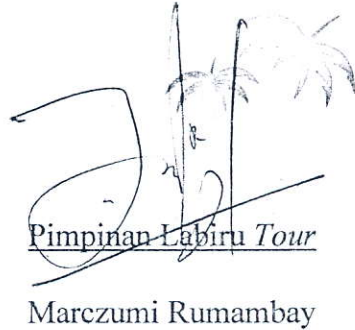 Pimpinan Labiru Tour
Marczumi Rumambay